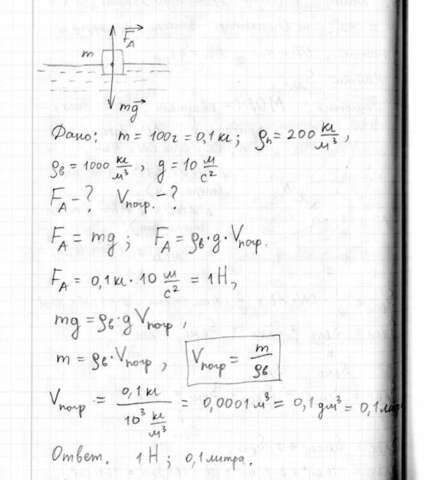 F_A
m
mg
Дано: m = 100г = 0,1 кг; ρп = 200 кг/м³,
ρв = 1000 кг/м³, g = 10 м/с²
F_A - ? Vпогр. - ?
F_A = mg; F_A = ρв·g·Vпогр.
F_A = 0,1 кг · 10 м/с² = 1 Н,
mg = ρв·g Vпогр,
m = ρв·Vпогр, Vпогр = m/ρв
Vпогр = 0,1 кг / 10³ кг/м³ = 0,0001 м³ = 0,1 дм³ = 0,1 лит
Ответ. 1 Н; 0,1 литра.